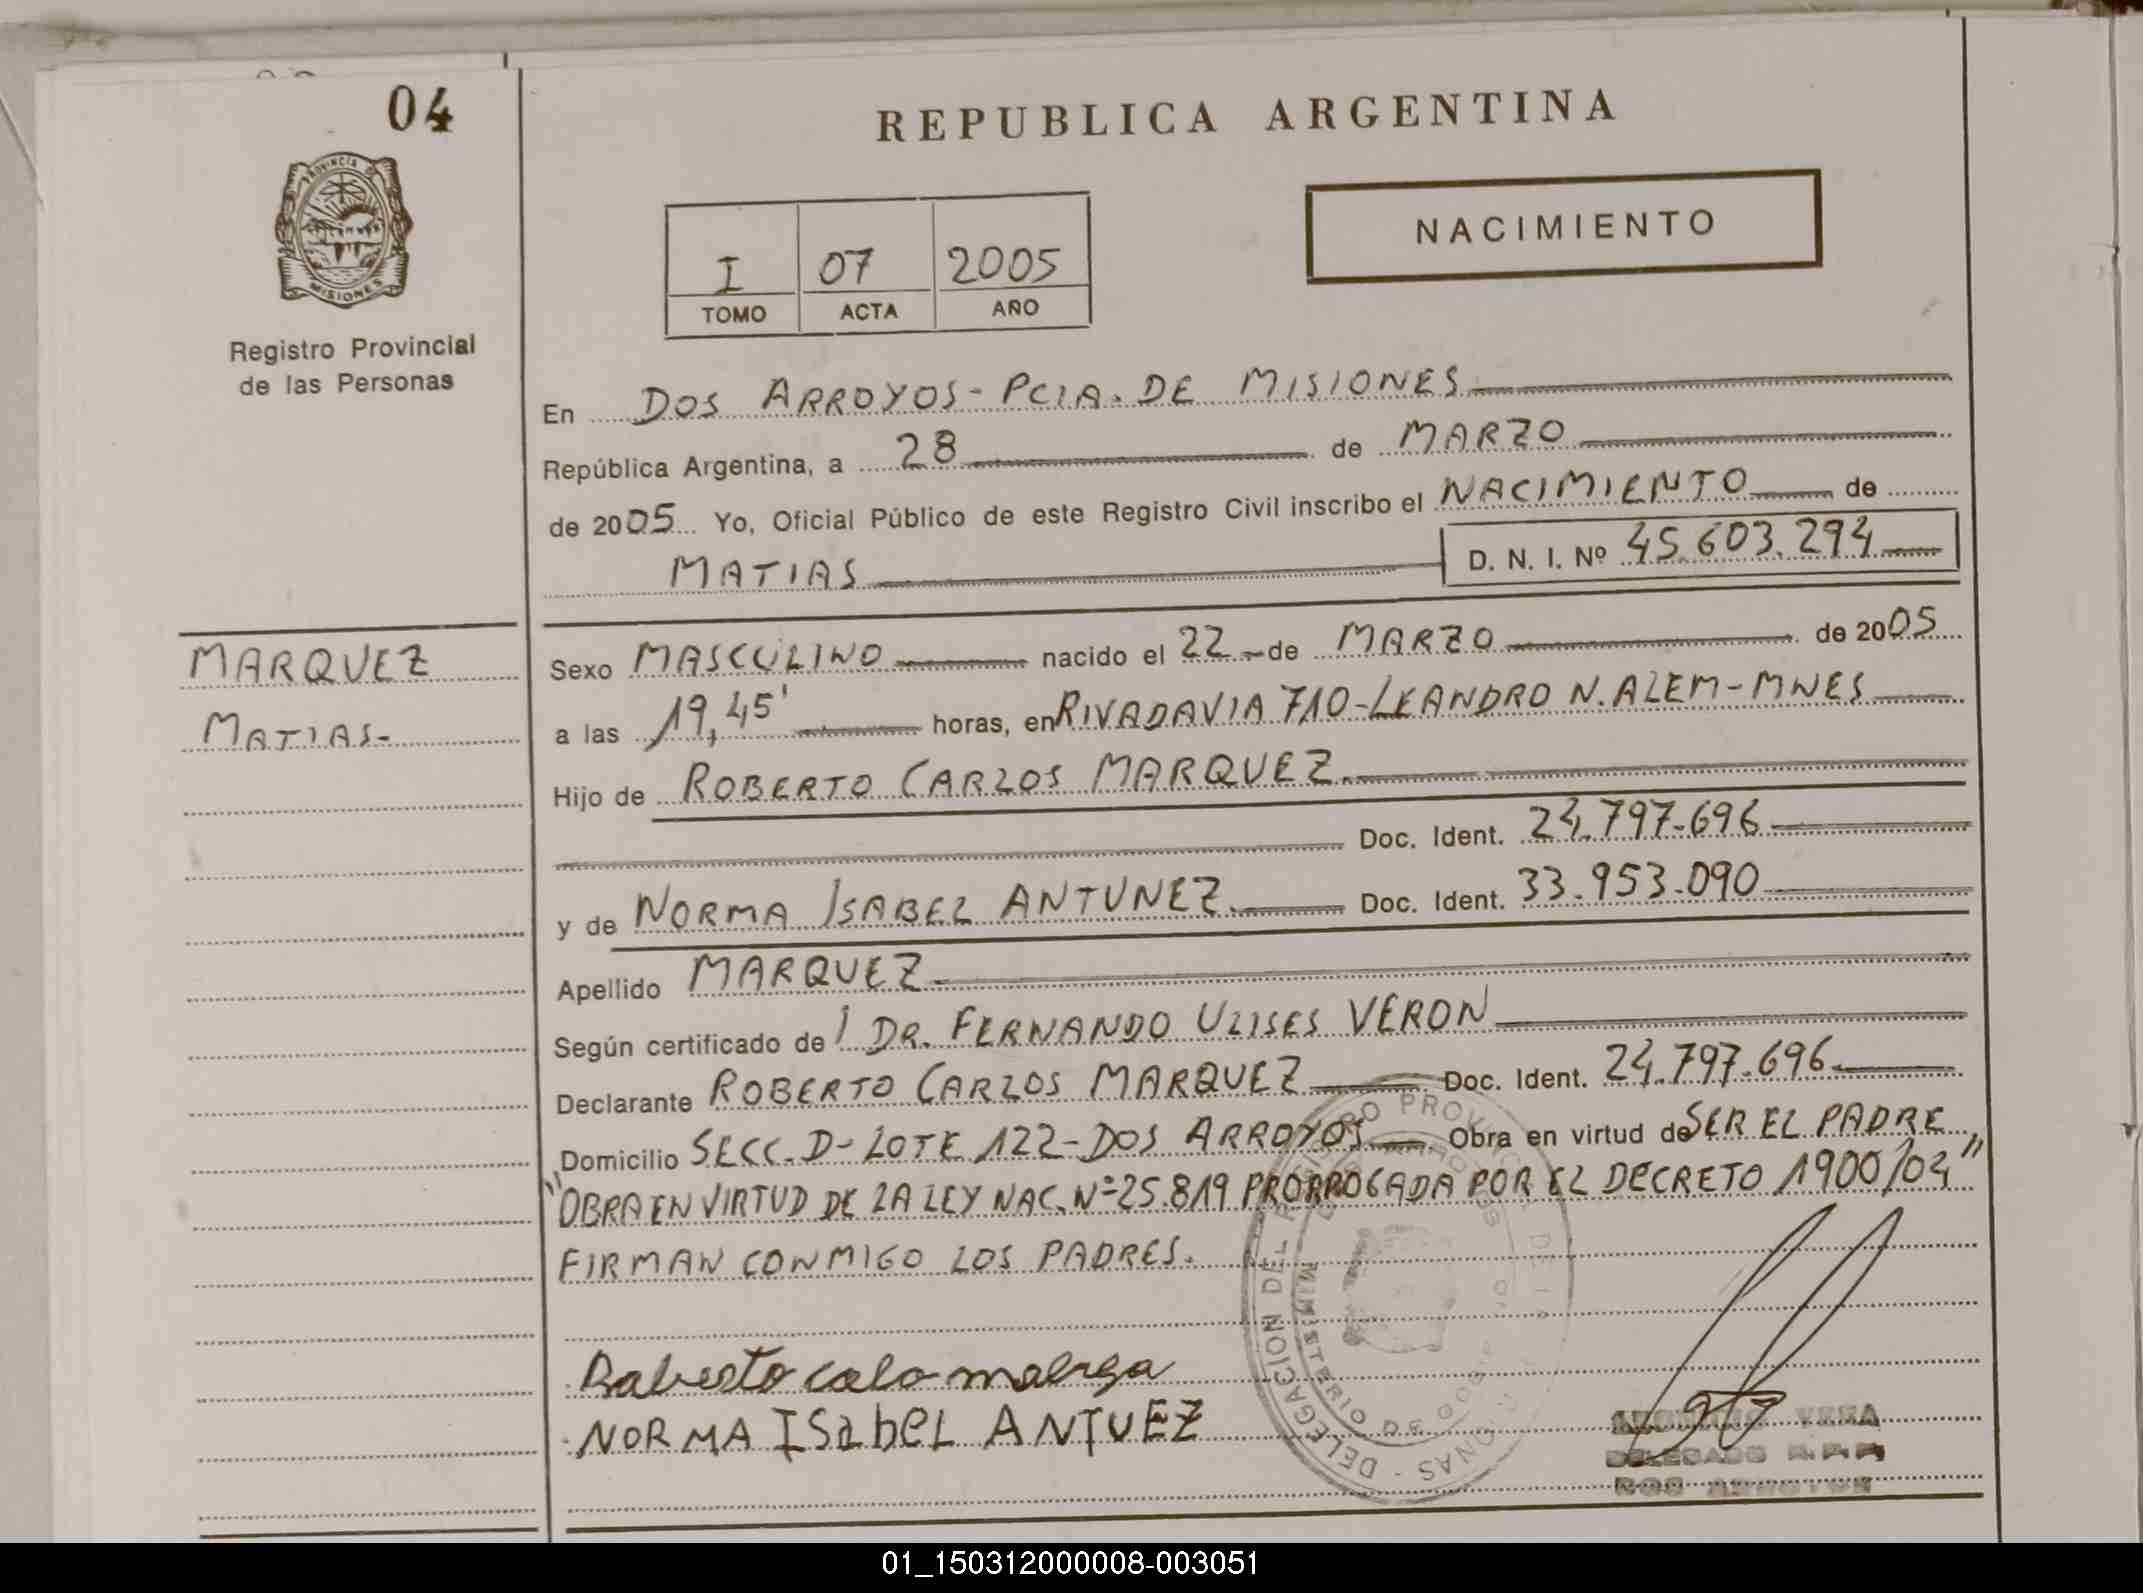 04
REPUBLICA ARGENTINA
PROVINCIA DE
MISIONES
NACIMIENTO
I 07 2005
TOMO ACTA AÑO
Registro Provincial
de las Personas
En DOS ARROYOS - PCIA. DE MISIONES
República Argentina, a 28 de MARZO
de 2005 Yo, Oficial Público de este Registro Civil inscribo el NACIMIENTO de
MATIAS D. N. I. Nº 45.603.294
MARQUEZ
MATIAS-
Sexo MASCULINO nacido el 22 de MARZO de 2005
a las 19,45' horas, en RIVADAVIA 710-LEANDRO N. ALEM-MNES
Hijo de ROBERTO CARLOS MARQUEZ.
Doc. Ident. 24.797.696
y de NORMA ISABEL ANTUNEZ. Doc. Ident. 33.953.090
Apellido MARQUEZ
Según certificado de l DR. FERNANDO ULISES VERON
Declarante ROBERTO CARLOS MARQUEZ Doc. Ident. 24.797.696
Domicilio SECC. D- LOTE 122-DOS ARROYOS Obra en virtud de SER EL PADRE
"OBRA EN VIRTUD DE LA LEY NAC. Nº 25.819 PRORROGADA POR EL DECRETO 1900/04"
FIRMAN CONMIGO LOS PADRES.
NORMA ISabEL ANTUEZ
DELEGACION DEL REGISTRO PROVINCIAL DE LAS
MINISTERIO DE GOBIERNO
DELEGADO R.P.P.
DOS ARROYOS
01_150312000008-003051